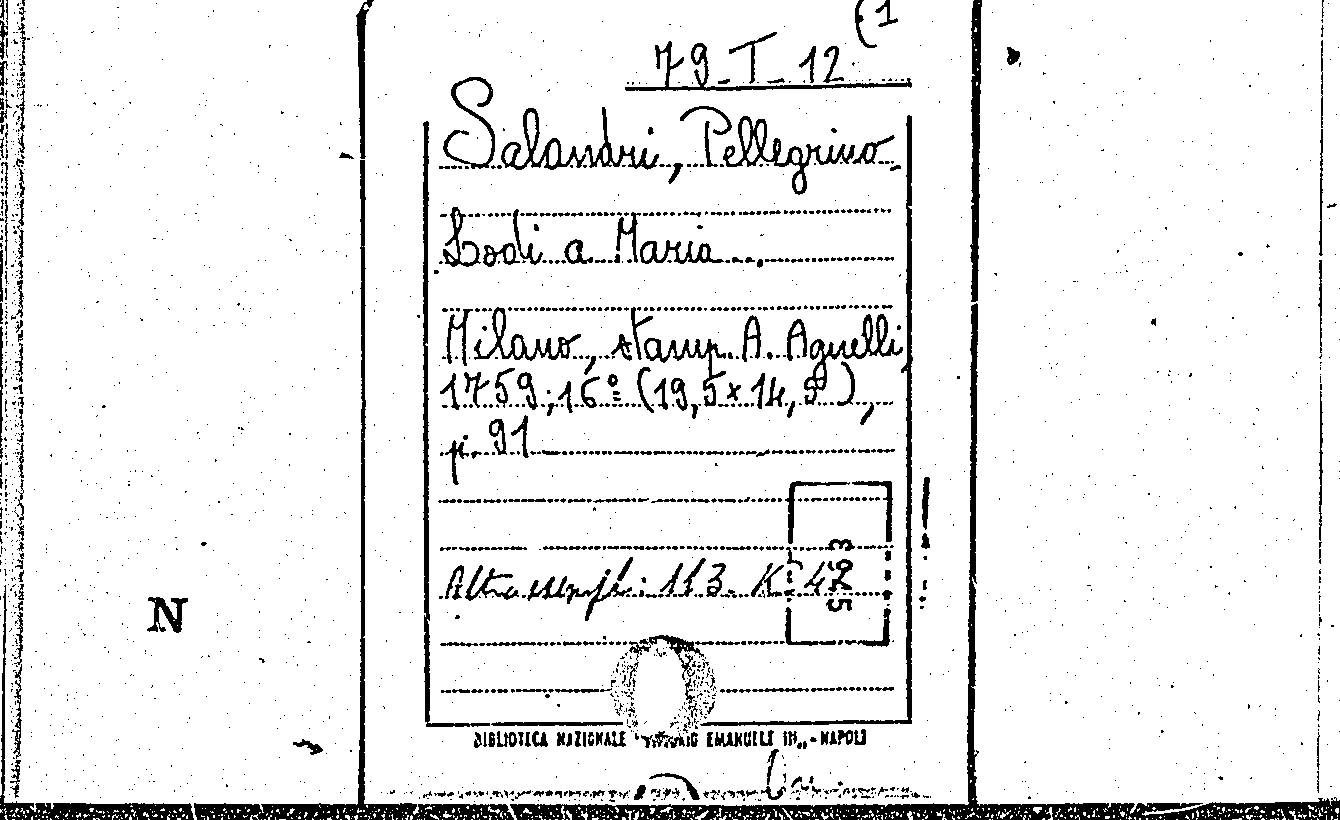 (1
79-T-12
Salandri, Pellegrino.
Lodi a Maria...
Milano, stamp. A. Agnelli,
1759; 16º (19,5x14,5),
p. 91
Altro esempl: 113. K 42
N
BIBLIOTECA NAZIONALE "VITTORIO EMANUELE III" - NAPOLI